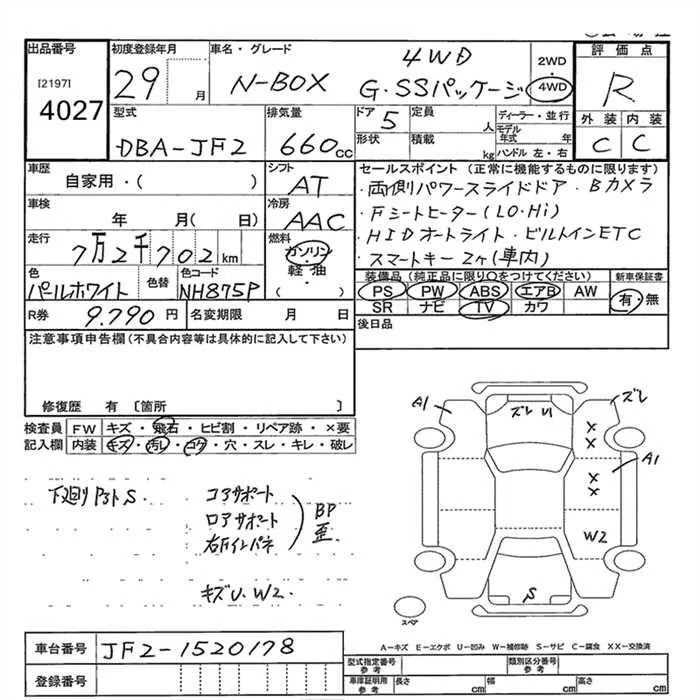 出品番号
[2197]
4027
初度登録年月
29 月
車名・グレード
N-BOX
4WD
G・SSパッケージ
2WD
・
4WD
評価点
R
外装 内装
C C
型式
DBA-JF2
排気量
660cc
ドア 5
形状
定員 人
積載 kg
ディーラー・並行
モデル年式 年
ハンドル 左・右
車歴
自家用・( )
シフト
AT
車検
年 月( 日)
冷房
AAC
走行
7万2千702km
燃料
ガソリン
・
軽・油
( )
色
パールホワイト
色替
色コード
NH875P
R券 9.790円
名変期限 月 日
セールスポイント (正常に機能するものに限ります)
・両側パワースライドドア・Bカメラ
・Fシートヒーター(LO.Hi)
・HIDオートライト・ビルトインETC
・スマートキー2ヶ(車内)
装備品(純正品に限り○をつけてください)
PS PW ABS エアB AW
SR ナビ TV カワ
新車保証書
有・無
後日品
注意事項申告欄(不具合内容等は具体的に記入して下さい)
修復歴 有 〔箇所 〕
検査員記入欄
FW キズ・飛石・ヒビ割・リペア跡・×要
内装 キズ・汚レ・コゲ・穴・スレ・キレ・破レ
下廻りP3トS.
コアサポート
ロアサポート
右Fインパネ
BP
歪
キズU.W2.
A1
ズレ U1
ズレ
×
×
A1
×
×
W2
S
スペア
A-キズ E-エクボ U-凹み W-補修跡 S-サビ C-腐食 XX-交換済
車台番号 JF2-1520178
登録番号
型式指定番号 参考
類別区分番号 参考
車庫証明用 参考
長さ cm
幅 cm
高さ cm